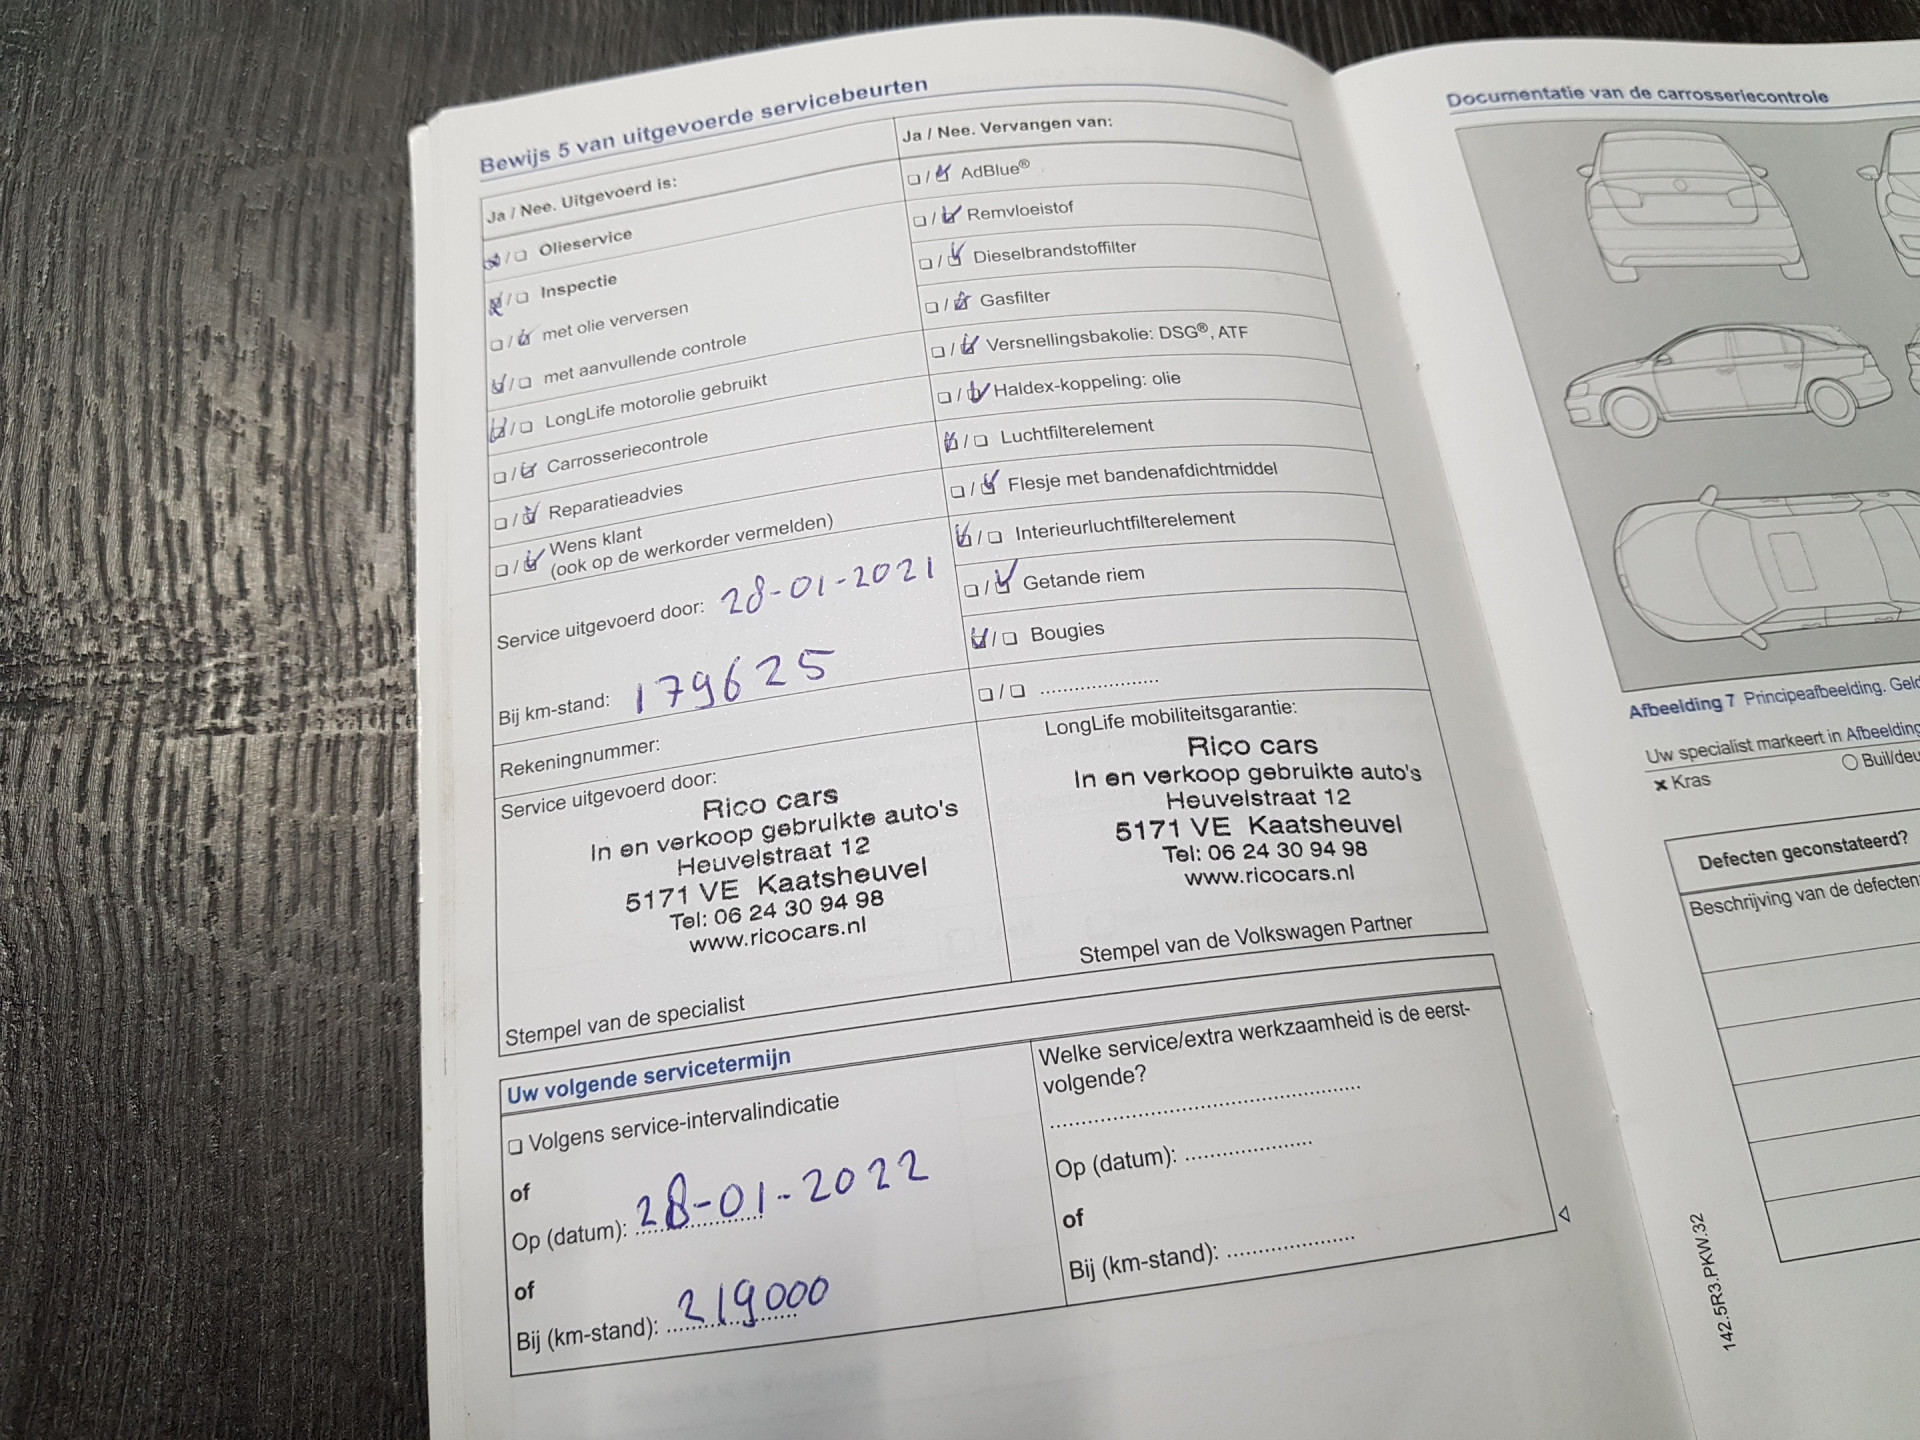 Bewijs 5 van uitgevoerde servicebeurten
Ja / Nee. Uitgevoerd is:
Olieservice
Inspectie
met olie verversen
met aanvullende controle
LongLife motorolie gebruikt
Carrosseriecontrole
Reparatieadvies
Wens klant
(ook op de werkorder vermelden)
Service uitgevoerd door: 28-01-2021
Bij km-stand: 179625
Rekeningnummer:
Service uitgevoerd door:
Rico cars
In en verkoop gebruikte auto's
Heuvelstraat 12
5171 VE Kaatsheuvel
Tel: 06 24 30 94 98
www.ricocars.nl
Stempel van de specialist
Ja / Nee. Vervangen van:
AdBlue®
Remvloeistof
Dieselbrandstoffilter
Gasfilter
Versnellingsbakolie: DSG®, ATF
Haldex-koppeling: olie
Luchtfilterelement
Flesje met bandenafdichtmiddel
Interieurluchtfilterelement
Getande riem
Bougies
LongLife mobiliteitsgarantie:
Rico cars
In en verkoop gebruikte auto's
Heuvelstraat 12
5171 VE Kaatsheuvel
Tel: 06 24 30 94 98
www.ricocars.nl
Stempel van de Volkswagen Partner
Uw volgende servicetermijn
Volgens service-intervalindicatie
of
Op (datum): 28-01-2022
of
Bij (km-stand): 219000
Welke service/extra werkzaamheid is de eerst-
volgende?
Op (datum):
of
Bij (km-stand):
Documentatie van de carrosseriecontrole
Afbeelding 7 Principeafbeelding.
Uw specialist markeert in Afbeelding
Kras
Defecten geconstateerd?
Beschrijving van de defecten
142.5R3.PKW.32